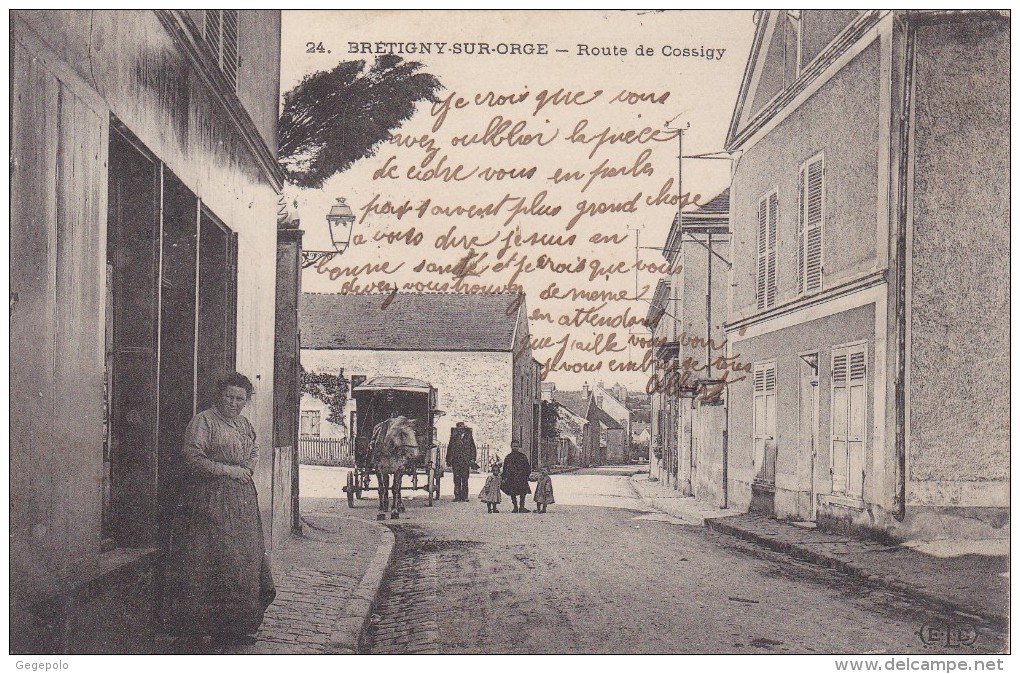 24. BRÉTIGNY-SUR-ORGE – Route de Cossigy
Je crois que vous
avez oublier la pièce
de cidre vous en parles
pas souvent plus grand chose
a vous dire je suis en
bonne santé et je crois que vous
devez vous trouvez de meme
en attendant
que j'aille vous voir
je vous embrasse tous
Albert
E.L.D
Gegepolo
Route de/delcampe.net